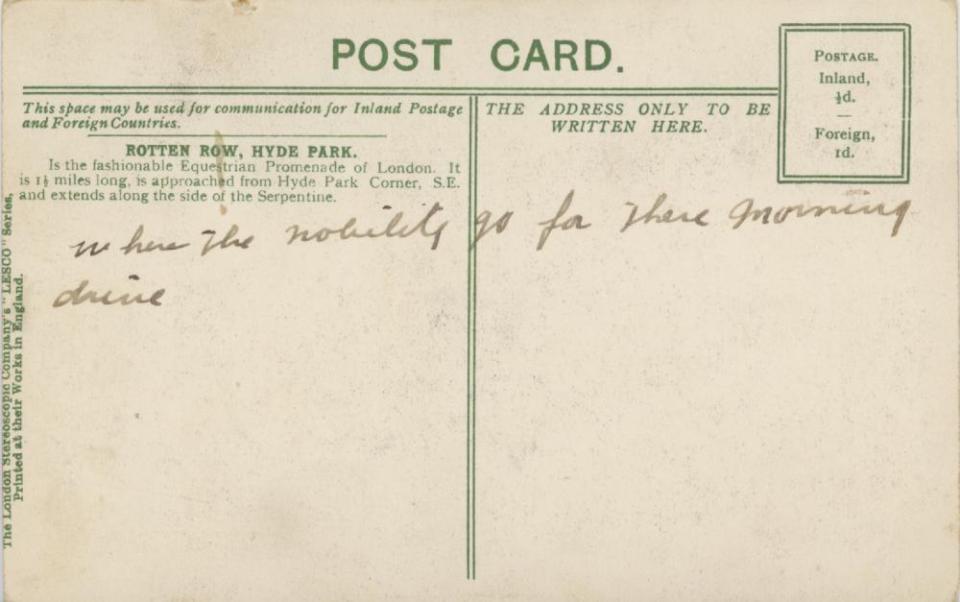 POST CARD.
POSTAGE.
Inland,
½d.
—
Foreign,
1d.
This space may be used for communication for Inland Postage
and Foreign Countries.
THE ADDRESS ONLY TO BE
WRITTEN HERE.
ROTTEN ROW, HYDE PARK.
Is the fashionable Equestrian Promenade of London. It
is 1½ miles long, is approached from Hyde Park Corner, S.E.
and extends along the side of the Serpentine.
where the nobility go for there morning
drive
The London Stereoscopic Company's "LESCO" Series,
Printed at their Works in England.